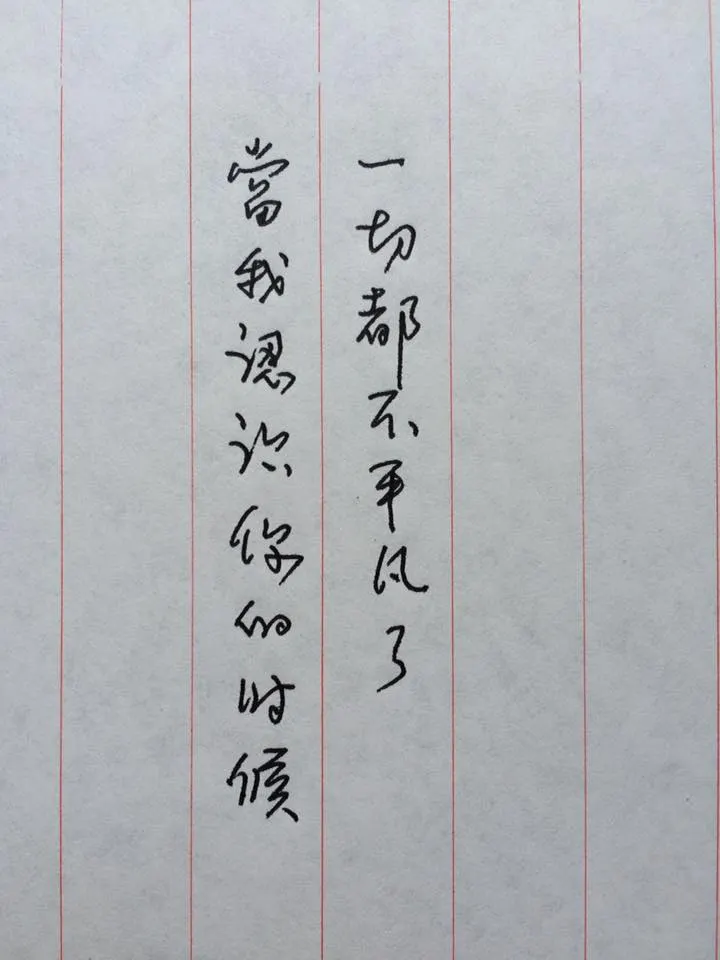 一切都不平凡了
當我認识你的时候